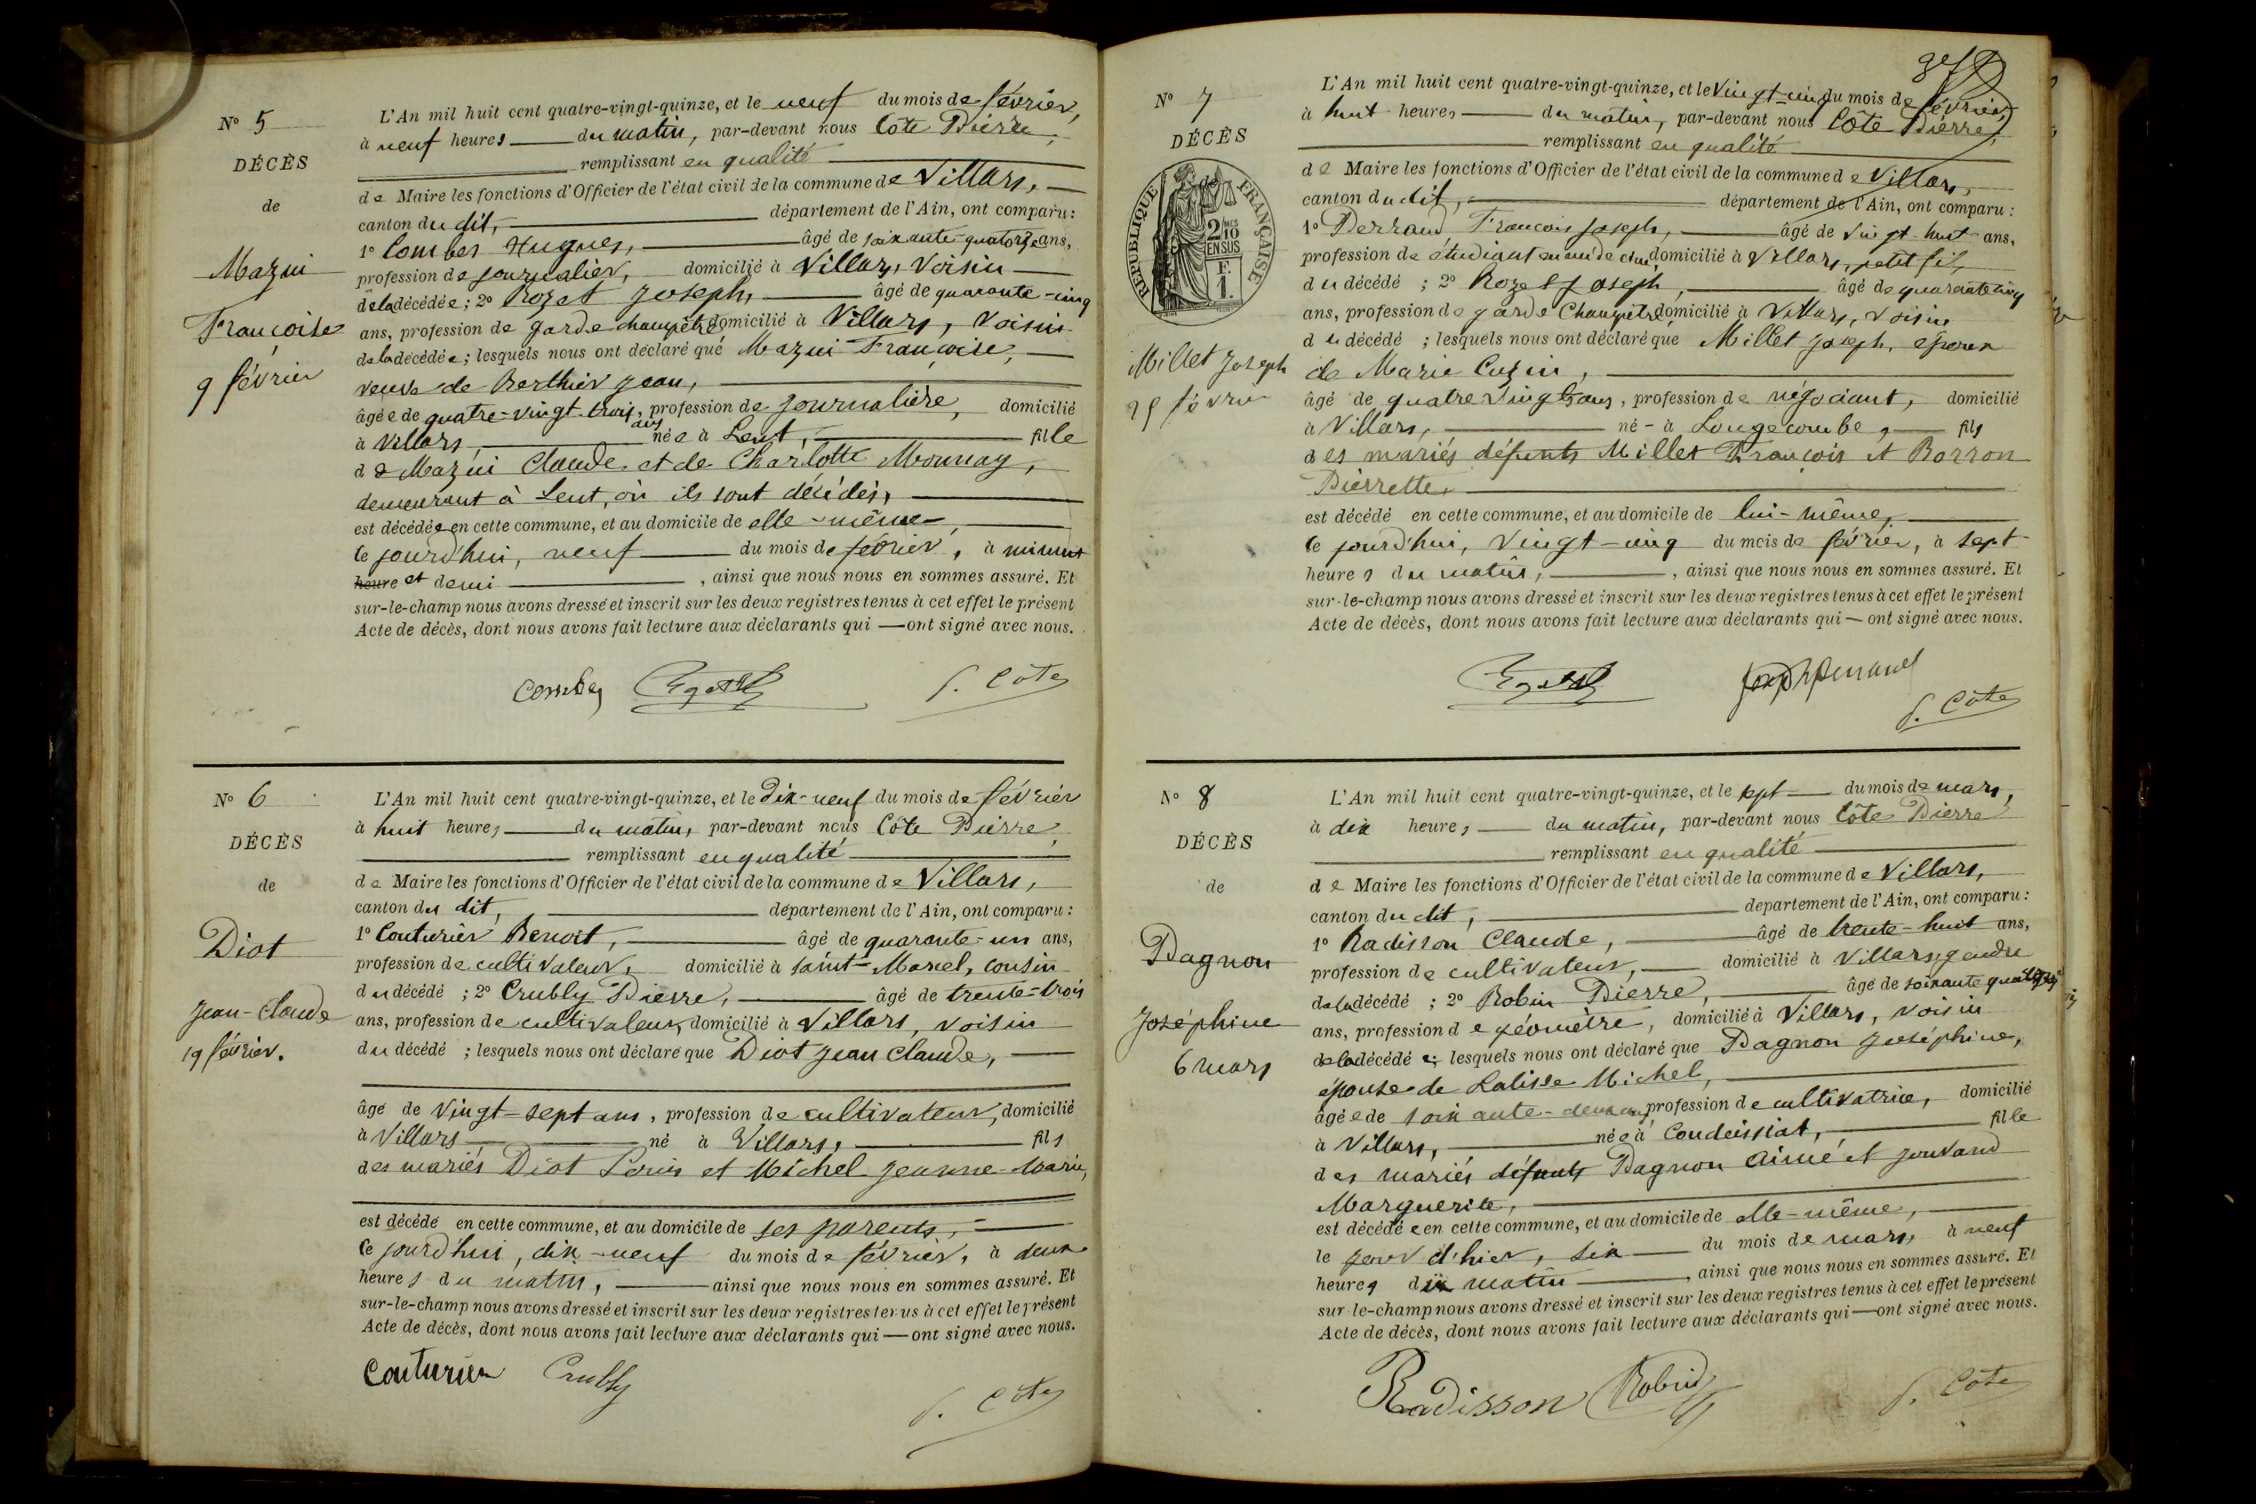 N° 5
DÉCÈS
de
Mazui
Françoise
9 février
L'An mil huit cent quatre-vingt-quinze, et le neuf du mois de février,
à neuf heures du matin, par-devant nous Côte Pierre,
remplissant en qualité
de Maire les fonctions d'Officier de l'état civil de la commune de Villars,
canton du dit, département de l'Ain, ont comparu :
1° Combes Hugues, âgé de soixante-quatorze ans,
profession de journalier, domicilié à Villars, voisin
de la décédée ; 2° Rozet Joseph, âgé de quarante-cinq
ans, profession de garde champêtre, domicilié à Villars, voisin
de la décédée ; lesquels nous ont déclaré que Mazui Françoise,
veuve de Berthier Jean,
âgée de quatre-vingt-trois ans, profession de journalière, domicilié
à Villars, née à Lent, fille
de Mazui Claude et de Charlotte Monnay,
demeurant à Lent, où ils sont décédés,
est décédée en cette commune, et au domicile de elle-même,
ce jourd'hui, neuf du mois de février, à minuit
heure et demi, ainsi que nous nous en sommes assuré. Et
sur-le-champ nous avons dressé et inscrit sur les deux registres tenus à cet effet le présent
Acte de décès, dont nous avons fait lecture aux déclarants qui — ont signé avec nous.
Combes P. Côte
N° 6
DÉCÈS
de
Diot
Jean-Claude
19 février.
L'An mil huit cent quatre-vingt-quinze, et le dix-neuf du mois de février
à huit heures du matin, par-devant nous Côte Pierre,
remplissant en qualité
de Maire les fonctions d'Officier de l'état civil de la commune de Villars,
canton du dit, département de l'Ain, ont comparu :
1° Couturier Benoit, âgé de quarante-un ans,
profession de cultivateur, domicilié à Saint-Marcel, cousin
du décédé ; 2° Crubly Pierre, âgé de trente-trois
ans, profession de cultivateur, domicilié à Villars, voisin
du décédé ; lesquels nous ont déclaré que Diot Jean Claude,
âgé de vingt-sept ans, profession de cultivateur, domicilié
à Villars né à Villars, fils
des mariés Diot Louis et Michel Jeanne-Marie,
est décédé en cette commune, et au domicile de ses parents,
ce jourd'hui, dix-neuf du mois de février, à deux
heures du matin, ainsi que nous nous en sommes assuré. Et
sur-le-champ nous avons dressé et inscrit sur les deux registres tenus à cet effet le présent
Acte de décès, dont nous avons fait lecture aux déclarants qui — ont signé avec nous.
Couturier Crubly
P. Côte
N° 7
DÉCÈS
de
RÉPUBLIQUE FRANÇAISE
2/10
EN SUS
F.
1.
Millet Joseph
25 février
L'An mil huit cent quatre-vingt-quinze, et le vingt-cinq du mois de février,
à huit heures du matin, par-devant nous Côte Pierre,
remplissant en qualité
de Maire les fonctions d'Officier de l'état civil de la commune de Villars,
canton du dit, département de l'Ain, ont comparu :
1° Perraud François Joseph, âgé de vingt-huit ans,
profession de étudiant en médecine, domicilié à Villars, petit fils
du décédé ; 2° Rozet Joseph, âgé de quarante cinq
ans, profession de garde Champêtre, domicilié à Villars, voisin
du décédé ; lesquels nous ont déclaré que Millet Joseph, époux
de Marie Cuzin,
âgé de quatre vingt ans, profession de négociant, domicilié
à Villars, né à Longecombe, fils
des mariés défunts Millet François et Borron
Pierrette,
est décédé en cette commune, et au domicile de lui-même,
ce jourd'hui, vingt-cinq du mois de février, à sept
heures du matin, ainsi que nous nous en sommes assuré. Et
sur-le-champ nous avons dressé et inscrit sur les deux registres tenus à cet effet le présent
Acte de décès, dont nous avons fait lecture aux déclarants qui — ont signé avec nous.
Joseph Perraud
P. Côte
N° 8
DÉCÈS
de
Pagnon
Joséphine
6 mars
L'An mil huit cent quatre-vingt-quinze, et le sept du mois de mars,
à dix heures du matin, par-devant nous Côte Pierre
remplissant en qualité
de Maire les fonctions d'Officier de l'état civil de la commune de Villars,
canton du dit, département de l'Ain, ont comparu :
1° Radisson Claude, âgé de trente-huit ans,
profession de cultivateur, domicilié à Villars, gendre
de la décédé ; 2° Robin Pierre, âgé de soixante quatorze
ans, profession de géomètre, domicilié à Villars, voisin
de la décédée ; lesquels nous ont déclaré que Pagnon Joséphine,
épouse de Lalisse Michel,
âgée de soixante-deux ans, profession de cultivatrice, domicilié
à Villars, née à Condeissiat, fille
des mariés défunts Pagnon Aimé et Jouvand
Marguerite,
est décédée en cette commune, et au domicile de elle-même,
le jour d'hier, six du mois de mars, à neuf
heures du matin, ainsi que nous nous en sommes assuré. Et
sur-le-champ nous avons dressé et inscrit sur les deux registres tenus à cet effet le présent
Acte de décès, dont nous avons fait lecture aux déclarants qui — ont signé avec nous.
Radisson Robin P. Côte